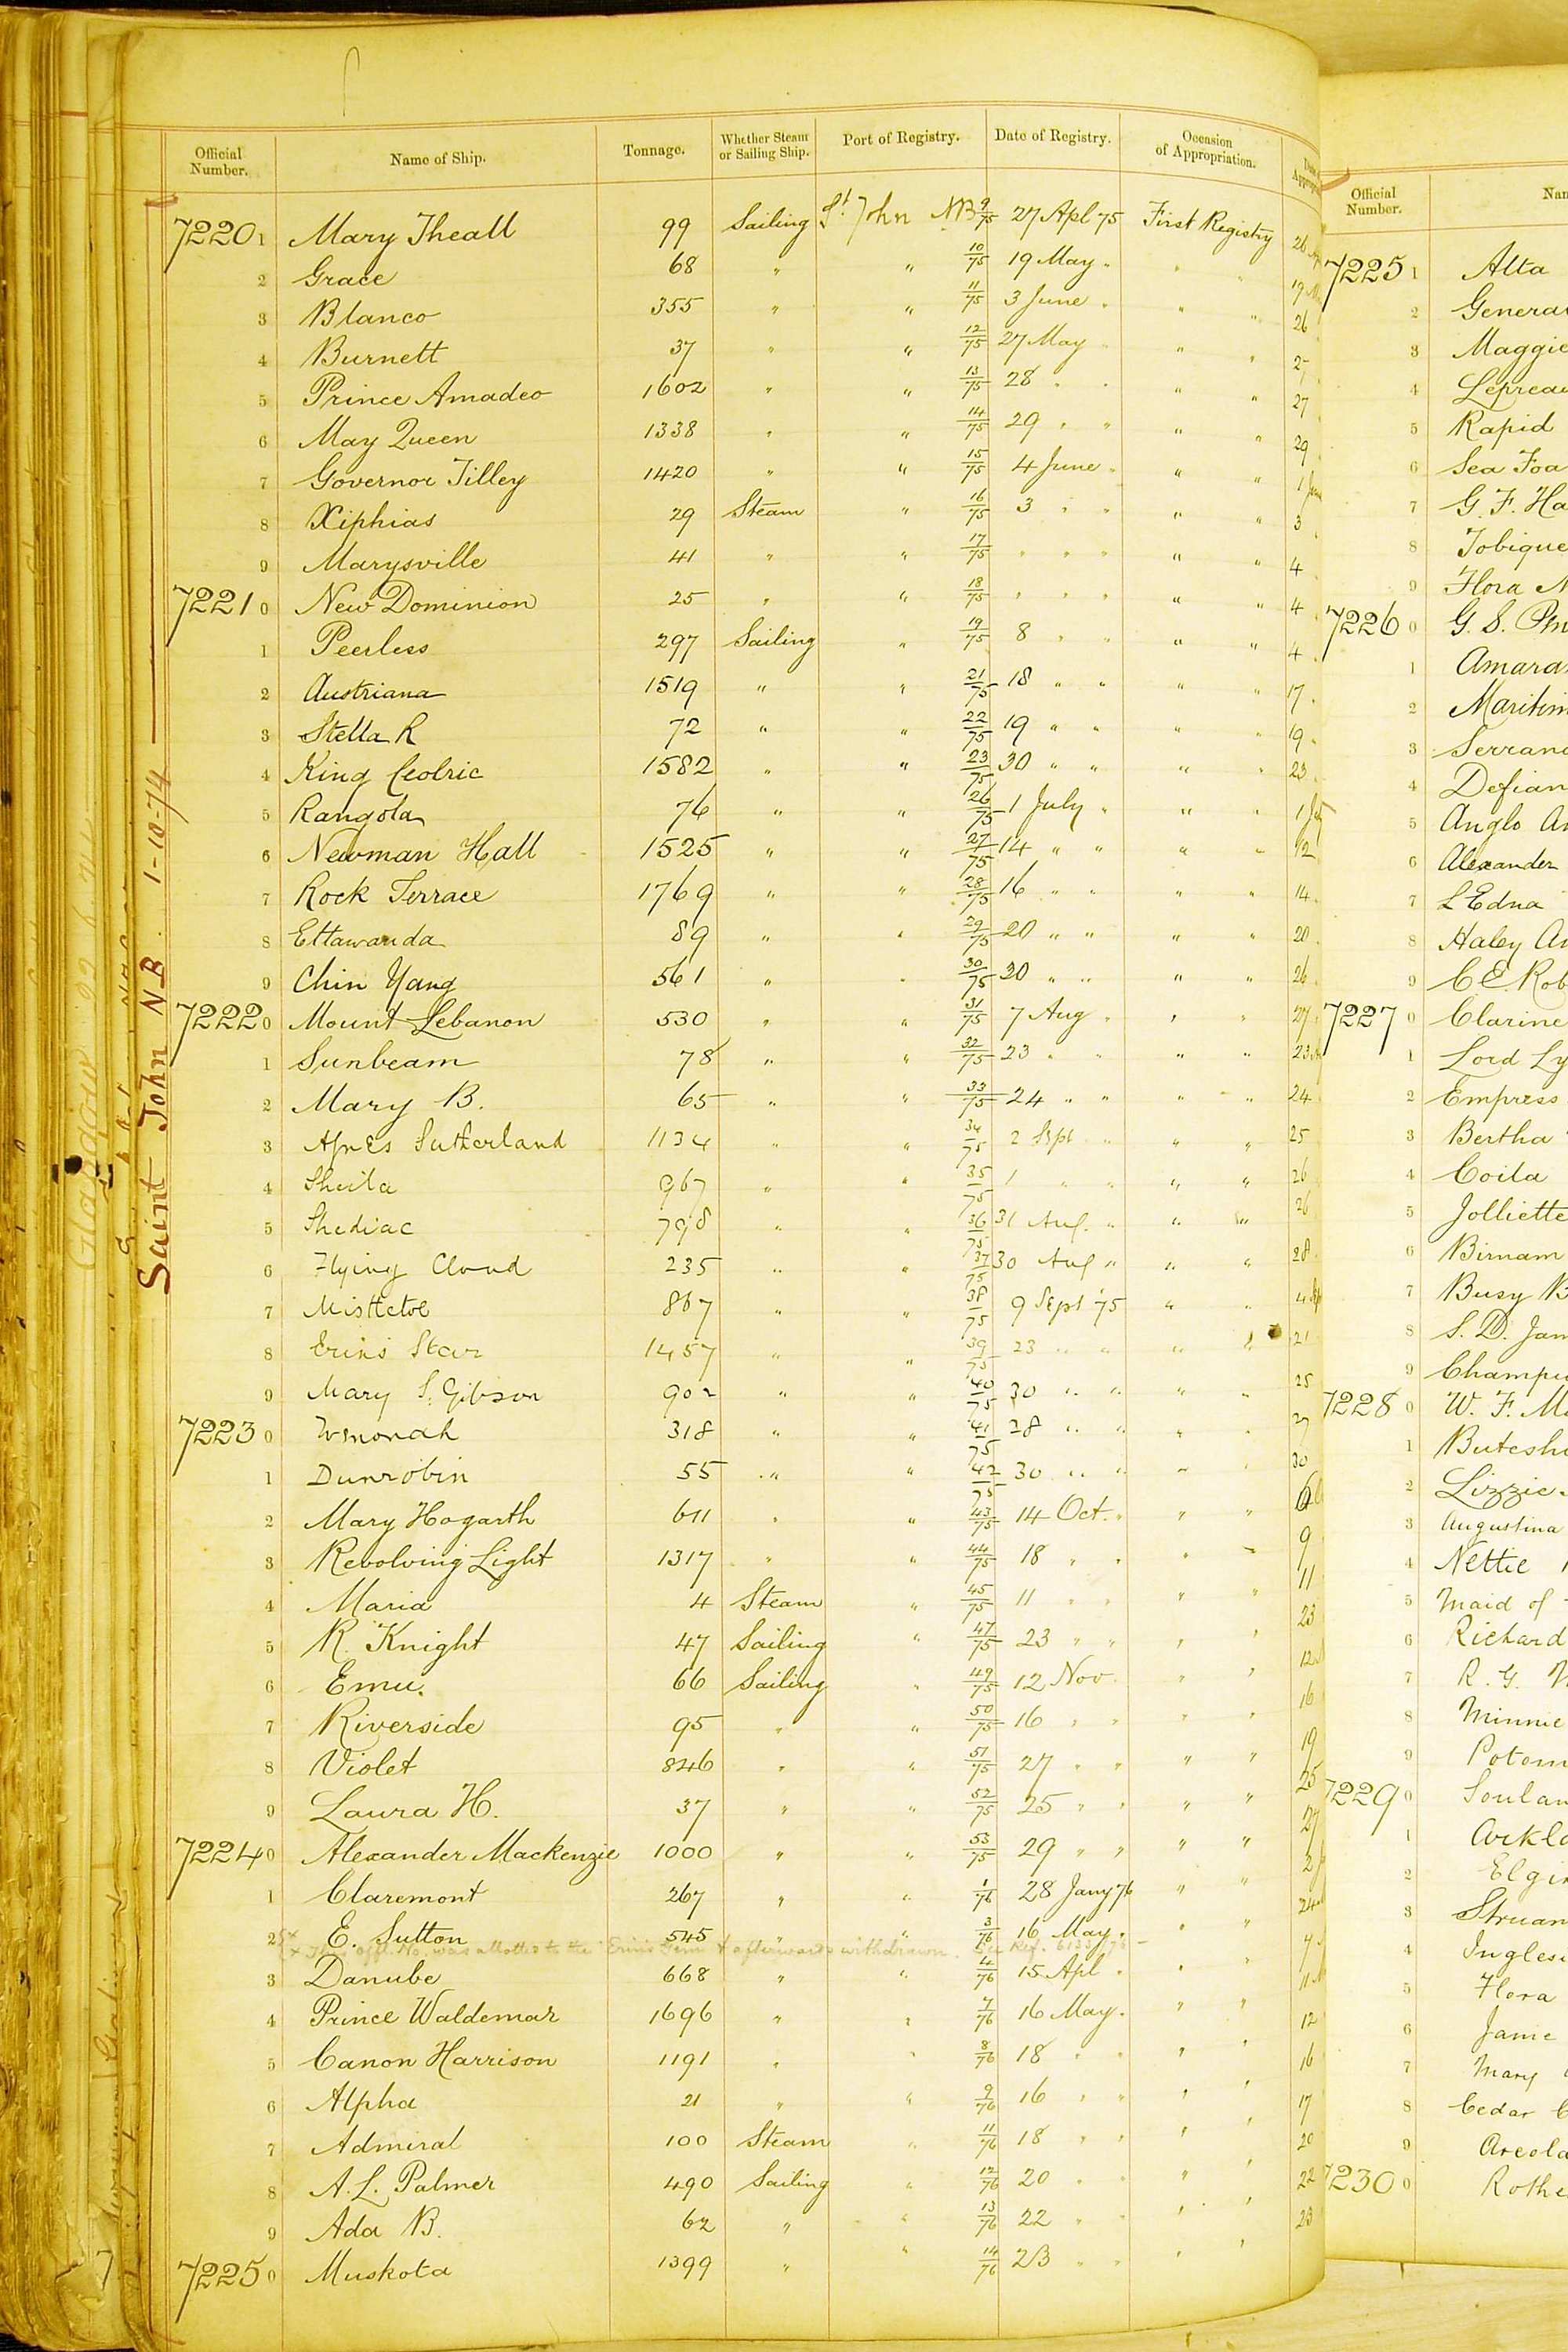 Official Number. Name of Ship. Tonnage. Whether Steam or Sailing Ship. Port of Registry. Date of Registry. Occasion of Appropriation.
7220 1 Mary Theall 99 Sailing St John NB 9/75 27 Apl 75 First Registry 26
2 Grace 68 " " 10/75 19 May " " " 19
3 Blanco 355 " " 11/75 3 June " " " 26
4 Burnett 37 " " 12/75 27 May " " " 27
5 Prince Amadeo 1602 " " 13/75 28 " " " " 27
6 May Queen 1338 " " 14/75 29 " " " " 29
7 Governor Tilley 1420 " " 15/75 4 June " " " 1 June
8 Xiphias 29 Steam " 16/75 3 " " " " 3
9 Marysville 41 " " 17/75 " " " " " 4
7221 0 New Dominion 25 " " 18/75 " " " " " 4
1 Peerless 297 Sailing " 19/75 8 " " " " 4
2 Austriana 1519 " " 21/75 18 " " " " 17
3 Stella R 72 " " 22/75 19 " " " " 19
4 King Ceolric 1582 " " 23/75 30 " " " " 23
5 Rangola 76 " " 26/75 1 July " " " 1 July
6 Newman Hall 1525 " " 27/75 14 " " " " 12
7 Rock Terrace 1769 " " 28/75 16 " " " " 14
8 Ettawanda 89 " " 29/75 20 " " " " 20
9 Chin Yang 561 " " 30/75 30 " " " " 26
7222 0 Mount Lebanon 530 " " 31/75 7 Aug " " " 27
1 Sunbeam 78 " " 32/75 23 " " " " 23
2 Mary B. 65 " " 33/75 24 " " " " 24
3 Agnes Sutherland 1134 " " 34/75 2 Sept " " " 25
4 Sheila 967 " " 35/75 1 " " " " 26
5 Shediac 798 " " 36/75 31 Aug. " " " 26
6 Flying Cloud 235 " " 37/75 30 Aug " " " 28
7 Mistletoe 867 " " 38/75 9 Sept '75 " " 4 Sep
8 Erin's Star 1457 " " 39/75 23 " " " " 21
9 Mary S. Gibson 902 " " 40/75 30 " " " " 25
7223 0 Wenonah 318 " " 41/75 28 " " " " 27
1 Dunrobin 55 " " 42/75 30 " " " " 30
2 Mary Hogarth 611 " " 43/75 14 Oct. " " " 6
3 Revolving Light 1317 " " 44/75 18 " " " " 9
4 Maria 4 Steam " 45/75 11 " " " " 11
5 R. Knight 47 Sailing " 47/75 23 " " " " 23
6 Emu. 66 Sailing " 49/75 12 Nov. " " 12
7 Riverside 95 " " 50/75 16 " " " " 16
8 Violet 846 " " 51/75 27 " " " " 19
9 Laura H. 37 " " 52/75 25 " " " " 25
7224 0 Alexander Mackenzie 1000 " " 53/75 29 " " " " 27
1 Claremont 267 " " 1/76 28 Jany 76 " " 2
2 x E. Sutton 545 " " 3/76 16 May " " " 24
x This Offl. No. was allotted to the "Erin's Gem" & afterwards withdrawn. See Ref.
3 Danube 668 " " 4/76 15 Apl " " " 7
4 Prince Waldemar 1696 " " 7/76 16 May. " " 11
5 Canon Harrison 1191 " " 8/76 18 " " " " 12
6 Alpha 21 " " 9/76 16 " " " " 16
7 Admiral 100 Steam " 11/76 18 " " " " 17
8 A. L. Palmer 490 Sailing " 12/76 20 " " " " 20
9 Ada B. 62 " " 13/76 22 " " " " 22
7225 0 Muskota 1399 " " 14/76 23 " " " " 23
Saint John N.B. 1-10-74
Glasgow 22.6.74
Official Number. Nam
7225 1 Alta
2 Genera
3 Maggie
4 Leprea
5 Rapid
6 Sea Foa
7 G. F. Ha
8 Tobique
9 Flora
7226 0 G. S.
1 Amara
2 Maritim
3 Serran
4 Defian
5 Anglo A
6 Alexander
7 L Edna
8 Haley
9 C. E. Rob
7227 0 Clarine
1 Lord Ly
2 Empress
3 Bertha
4 Coila
5 Jolliette
6 Birnam
7 Busy B
8 S. D. Jam
9 Champi
7228 0 W. F. M
1 Butesh
2 Lizzie
3 Augustina
4 Nettie
5 Maid of
6 Richard
7 R. G.
8 Minnie
9 Potom
7229 0 Soulan
1 Arklo
2 Elgin
3 Struan
4 Ingles
5 Flora
6 Jane
7 Mary
8 Cedar C
9 Areola
7230 0 Rothe